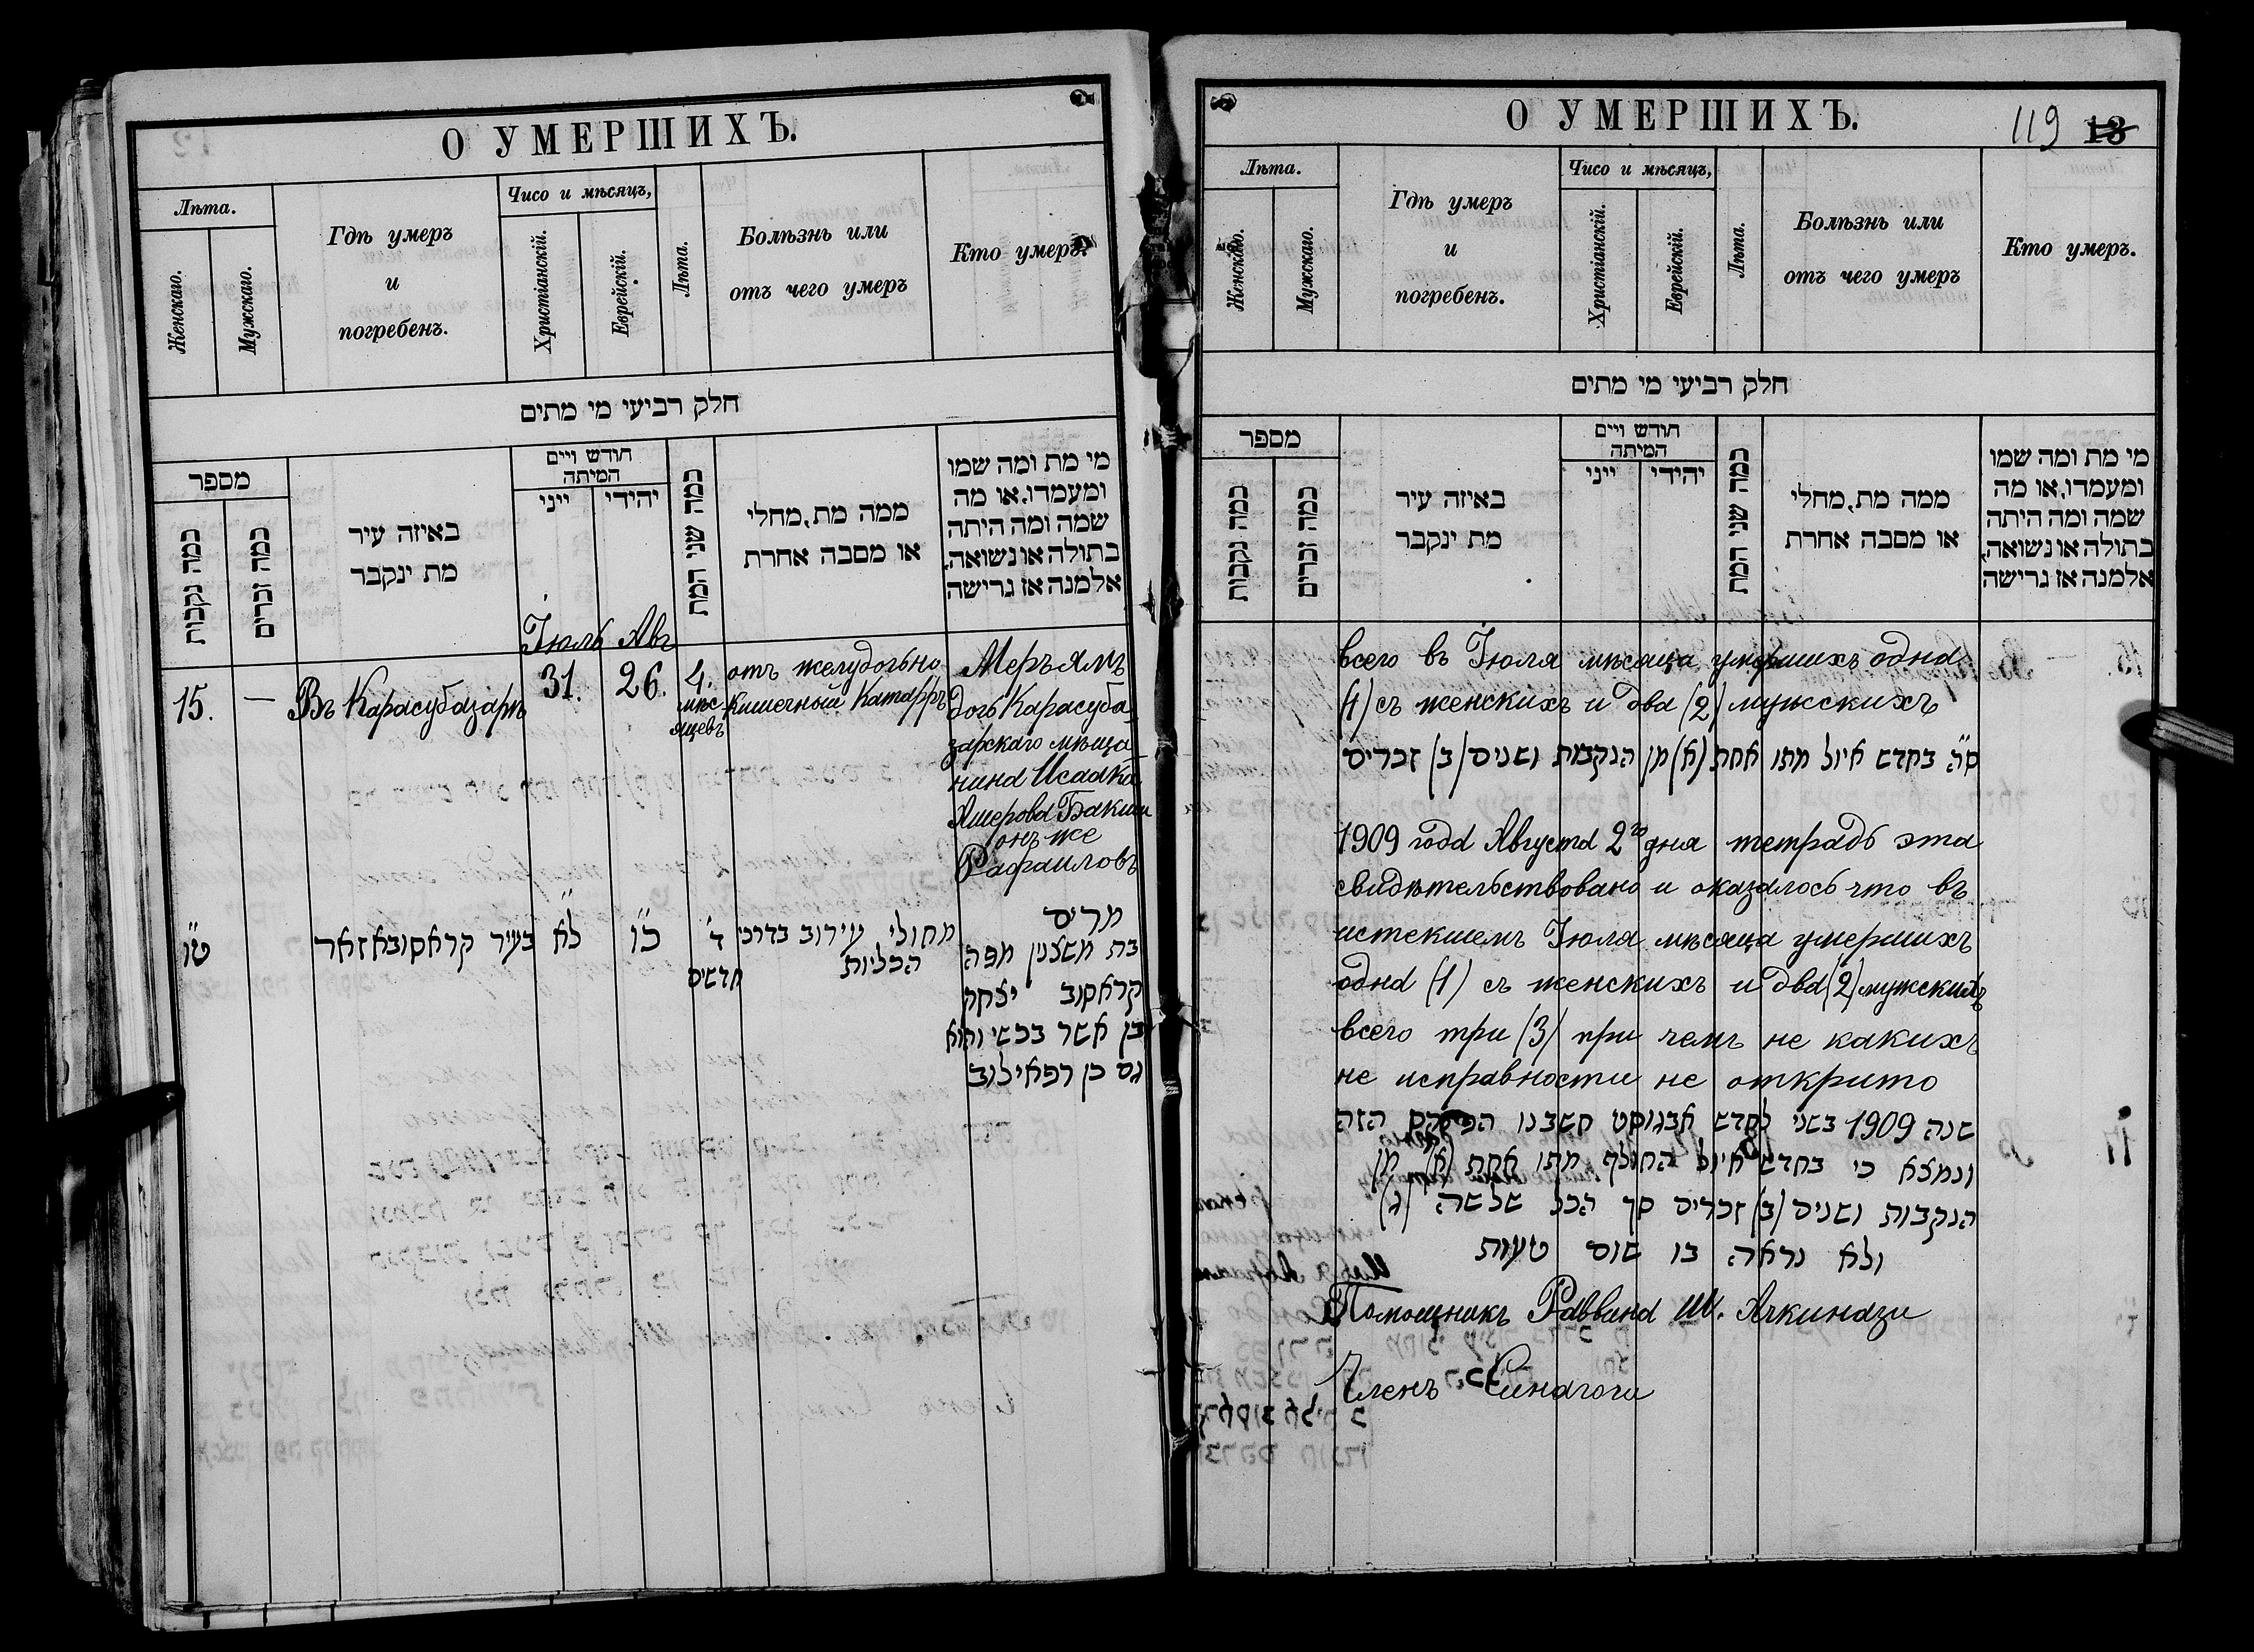 О УМЕРШИХЪ.
Лѣта.
Женскаго.
Мужскаго.
Гдѣ умеръ
и
погребенъ.
Чисо и мѣсяцъ,
Христіанскій.
Еврейскій.
Лѣта.
Болѣзнь или
отъ чего умеръ
Кто умеръ.
חלק רביעי מי מתים
מספר
כמה נקבות
כמה זכרים
באיזה עיר
מת ינקבר
חודש ויים
המיתה
ייני
יהידי
כמה שני המת
ממה מת, מחלי
או מסבה אחרת
מי מת ומה שמו
ומעמדו, או מה
שמה ומה היתה
בתולה או נשואה,
אלמנה אז גרישה
Іюль Авъ
15.
—
Въ Карасубазарѣ
31.
26.
4.
мѣс
яцевъ
отъ желудочьно
кишечный Катарръ
Меръямъ
дочь Карасуба
зарскаго мѣща
нина Исаака
Ашерова Бакши
онъ же
Рафаиловъ
ט"ו
בעיר קראסובאזאר
ל"א
כ"ו
ד'
חדשים
מחולי עירוב בדרכי
הכליות
מרים
בת משצנין מפה
קראסוב יצחק
בן אשר בכשי והוא
גם כן רפאילוב
О УМЕРШИХЪ.
119 13
Лѣта.
Женскаго.
Мужскаго.
Гдѣ умеръ
и
погребенъ.
Чисо и мѣсяцъ,
Христіанскій.
Еврейскій.
Лѣта.
Болѣзнь или
отъ чего умеръ
Кто умеръ.
חלק רביעי מי מתים
מספר
כמה נקבות
כמה זכרים
באיזה עיר
מת ינקבר
חודש ויים
המיתה
ייני
יהידי
כמה שני המת
ממה מת, מחלי
או מסבה אחרת
מי מת ומה שמו
ומעמדו, או מה
שמה ומה היתה
בתולה או נשואה,
אלמנה אז גרישה
всего въ Іюля мѣсяца умершихъ одна
(1) съ женскихъ и два (2) мужскихъ
ס"ה בחדש איול מתו אחת (א) מן הנקבות ושנים (ב) זכרים
1909 года Августа 2го дня тетрадь эта
свидѣтельствовано и оказалось что въ
истекшемъ Іюля мѣсяца умершихъ
одна (1) съ женскихъ и два (2) мужскихъ
всего три (3) при чемъ не какихъ
не исправности не открито
שנה 1909 בשני לחדש אבגוסט חשבנו הפנקס הזה
ונמצא כי בחדש איול החולף מתו אחת (א) מן
הנקבות ושנים (ב) זכרים סך הכל שלשה (ג)
ולא נראה בו שום טעות
Помощникъ Раввина Ш. Ачкинази
Членъ Синагоги